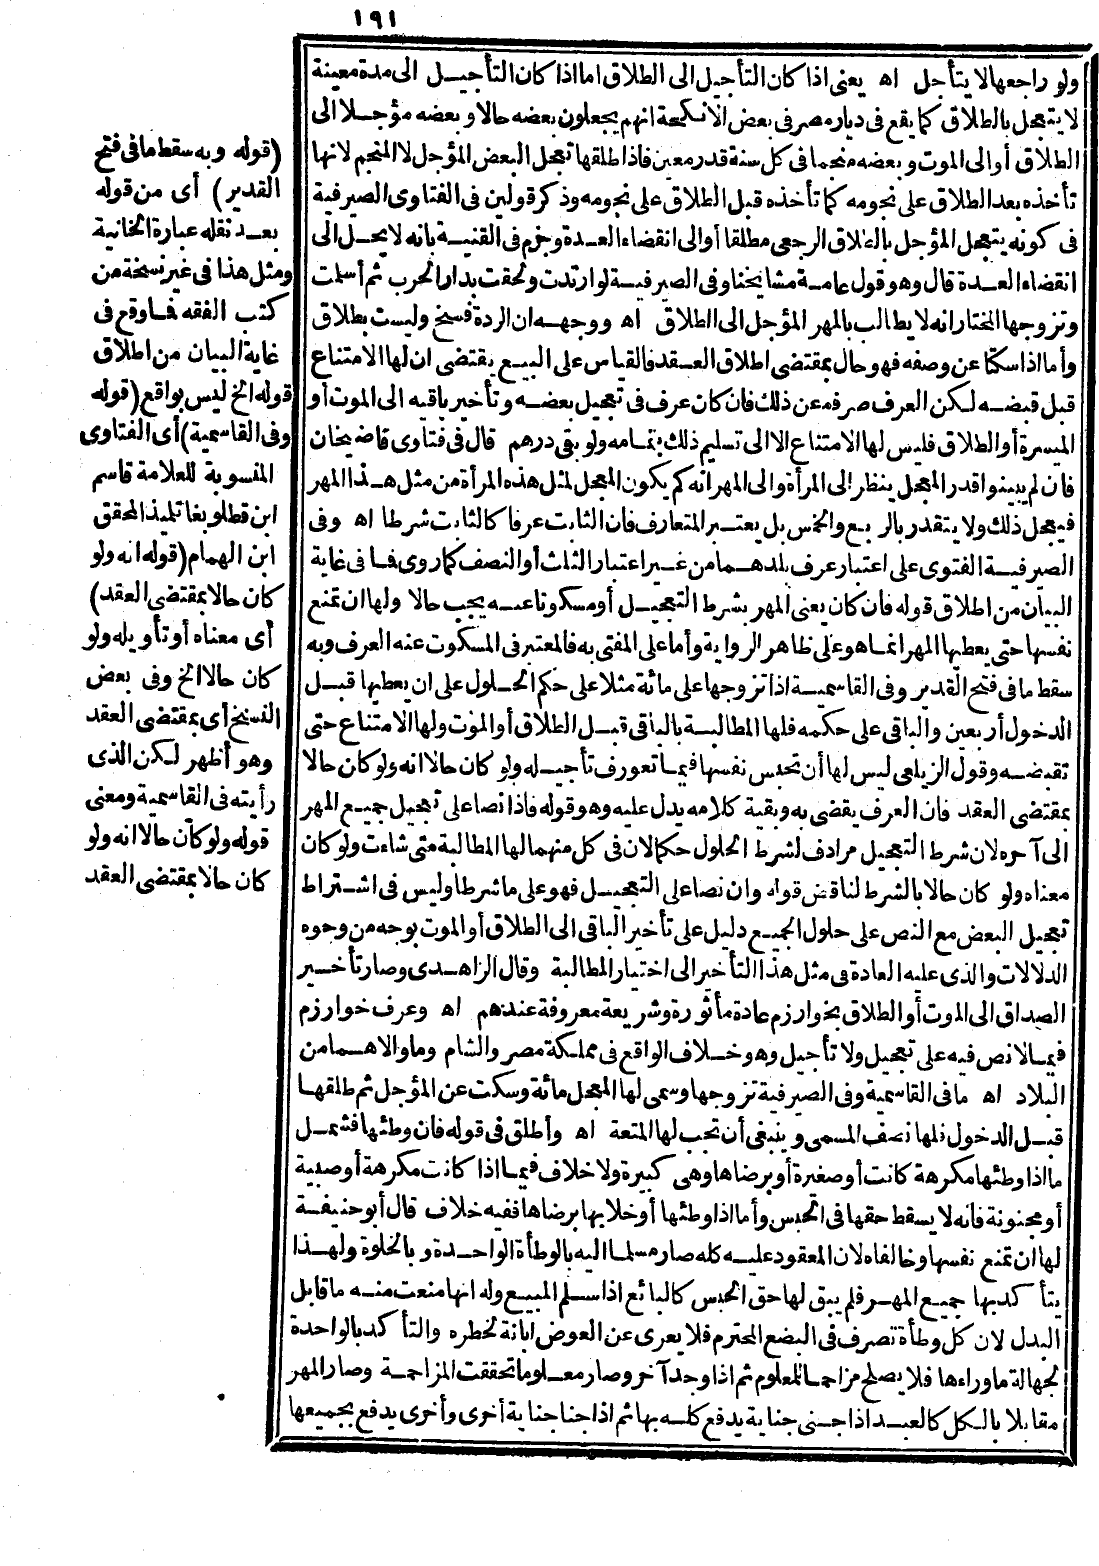 ١٩١
ولو راجعها لا يتأجل اه يعنى اذا كان التأجيل الى الطلاق اما اذا كان التأجيل الى مدة معينة
لا يتعجل بالطلاق كما يقع فى ديار مصر فى بعض الانكحة انهم يجعلون بعضه حالا وبعضه مؤجلا الى
الطلاق أو الى الموت وبعضه منجما فى كل سنة قدر معين فاذا طلقها تعجل البعض المؤجل لا المنجم لانها
تأخذه بعد الطلاق على نجومه كما تأخذه قبل الطلاق على نجومه وذكر قولين فى الفتاوى الصيرفية
فى كونه يتعجل المؤجل بالطلاق الرجعى مطلقا أو الى انقضاء العدة وجزم فى القنية بانه لا يحل الى
انقضاء العدة قال وهو قول عامة مشايخنا وفى الصيرفية لو ارتدت ولحقت بدار الحرب ثم أسلمت
وتزوجها المختار انه لا يطالب بالمهر المؤجل الى الطلاق اه ووجهه ان الردة فسخ وليست بطلاق
وأما اذا سكتا عن وصفه فهو حال بمقتضى اطلاق العقد فالقياس على البيع يقتضى ان لها الامتناع
قبل قبضه لكن العرف صرفه عن ذلك فان كان عرف فى تعجيل بعضه وتأخير باقيه الى الموت أو
الميسرة أو الطلاق فليس لها الامتناع الا الى تسليم ذلك بتمامه ولو بقى درهم قال فى فتاوى قاضيخان
فان لم يبينوا قدر المعجل ينظر الى المرأة والى المهر انه كم يكون المعجل لمثل هذه المرأة من مثل هذا المهر
فيعجل ذلك ولا يتقدر بالربع والخمس بل يعتبر المتعارف فان الثابت عرفا كالثابت شرطا اه وفى
الصيرفية الفتوى على اعتبار عرف بلدهما من غير اعتبار الثلث أو النصف كما روى فما فى غاية
البيان من اطلاق قوله فان كان يعنى المهر بشرط التعجيل أو مسكوتا عنه يجب حالا ولها ان تمنع
نفسها حتى يعطيها المهر انما هو على ظاهر الرواية وأما على المفتى به فالمعتبر فى المسكوت عنه العرف وبه
سقط ما فى فتح القدير وفى القاسمية اذا تزوجها على مائة مثلا على حكم الحلول على ان يعطيها قبل
الدخول أربعين والباقى على حكمه فلها المطالبة بالباقى قبل الطلاق أو الموت ولها الامتناع حتى
تقبضه وقول الزيلعى ليس لها أن تحبس نفسها فيما تعورف تأجيله ولو كان حالا انه ولو كان حالا
بمقتضى العقد فان العرف يقضى به وبقية كلامه يدل عليه وهو قوله فاذا نصا على تعجيل جميع المهر
الى آخره لان شرط التعجيل مرادف لشرط الحلول حكما لان فى كل منهما لها المطالبة متى شاءت ولو كان
معناه ولو كان حالا بالشرط لناقض قوله وان نصا على التعجيل فهو على ما شرطا وليس فى اشتراط
تعجيل البعض مع النص على حلول الجميع دليل على تأخير الباقى الى الطلاق أو الموت بوجه من وجوه
الدلالات والذى عليه العادة فى مثل هذا التأخير الى اختيار المطالبة وقال الزاهدى وصار تأخير
الصداق الى الموت أو الطلاق بخوارزم عادة مأثورة وشريعة معروفة عندهم اه وعرف خوارزم
فيما لا نص فيه على تعجيل ولا تأجيل وهو خلاف الواقع فى مملكة مصر والشام وما والاهما من
البلاد اه ما فى القاسمية وفى الصيرفية تزوجها وسمى لها المعجل مائة وسكت عن المؤجل ثم طلقها
قبل الدخول فلها نصف المسمى وينبغى أن تجب لها المتعة اه وأطلق فى قوله فان وطئها فشمل
ما اذا وطئها مكرهة كانت أو صغيرة أو برضاها وهى كبيرة ولا خلاف فيما اذا كانت مكرهة أو صبية
أو مجنونة فانه لا يسقط حقها فى الحبس وأما اذا وطئها أو خلا بها برضاها ففيه خلاف قال أبو حنيفة
لها ان تمنع نفسها وخالفاه لان المعقود عليه كله صار مسلما اليه بالوطأة الواحدة وبالخلوة ولهذا
يتأكد بها جميع المهر فلم يبق لها حق الحبس كالبائع اذا سلم المبيع وله انها منعت منه ما قابل
البدل لان كل وطأة تصرف فى البضع المحترم فلا يعرى عن العوض ابانة لخطره والتأكد بالواحدة
لجهالة ما وراءها فلا يصلح مزاحما للمعلوم ثم اذا وجد آخر وصار معلوما تحققت المزاحمة وصار المهر
مقابلا بالكل كالعبد اذا جنى جناية يدفع كله بها ثم اذا جنا جناية أخرى وأخرى يدفع بجميعها
(قوله وبه سقط ما فى فتح
القدير) أى من قوله
بعد نقله عبارة الخانية
ومثل هذا فى غير نسخة من
كتب الفقه فما وقع فى
غاية البيان من اطلاق
قوله الخ ليس بواقع (قوله
وفى القاسمية) أى الفتاوى
المنسوبة للعلامة قاسم
ابن قطلوبغا تلميذ المحقق
ابن الهمام (قوله انه ولو
كان حالا بمقتضى العقد)
أى معناه أو تأويله ولو
كان حالا الخ وفى بعض
النسخ أى بمقتضى العقد
وهو أظهر لكن الذى
رأيته فى القاسمية ومعنى
قوله ولو كان حالا انه ولو
كان حالا بمقتضى العقد